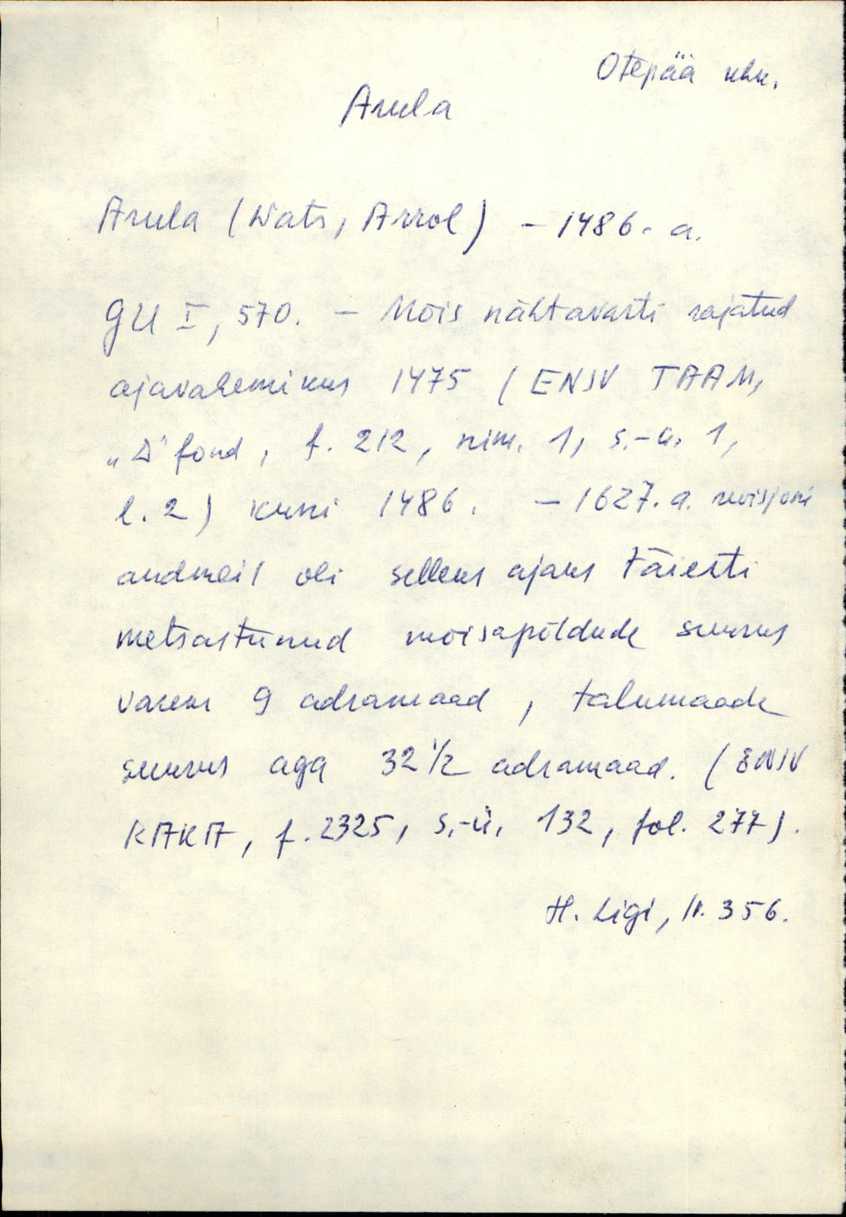 Otepää khk.
Arula
Arula (Wats, Arrol) – 1486. a.
GU I, 570. – Mõis nähtavasti rajatud
ajavahemikus 1475 (ENSV TAAM,
„D" fond, f. 212, nim. 1, s.-ü. 1,
l. 2) kuni 1486. – 1627. a. revisjoni
andmeil oli selleks ajaks täiesti
metsastunud mõisapõldude suurus
varem 9 adramaad, talumaade
suurus aga 32 1/2 adramaad. (ENSV
RAKA, f. 2325, s.-ü. 132, fol. 277).
H. Ligi, lk. 356.